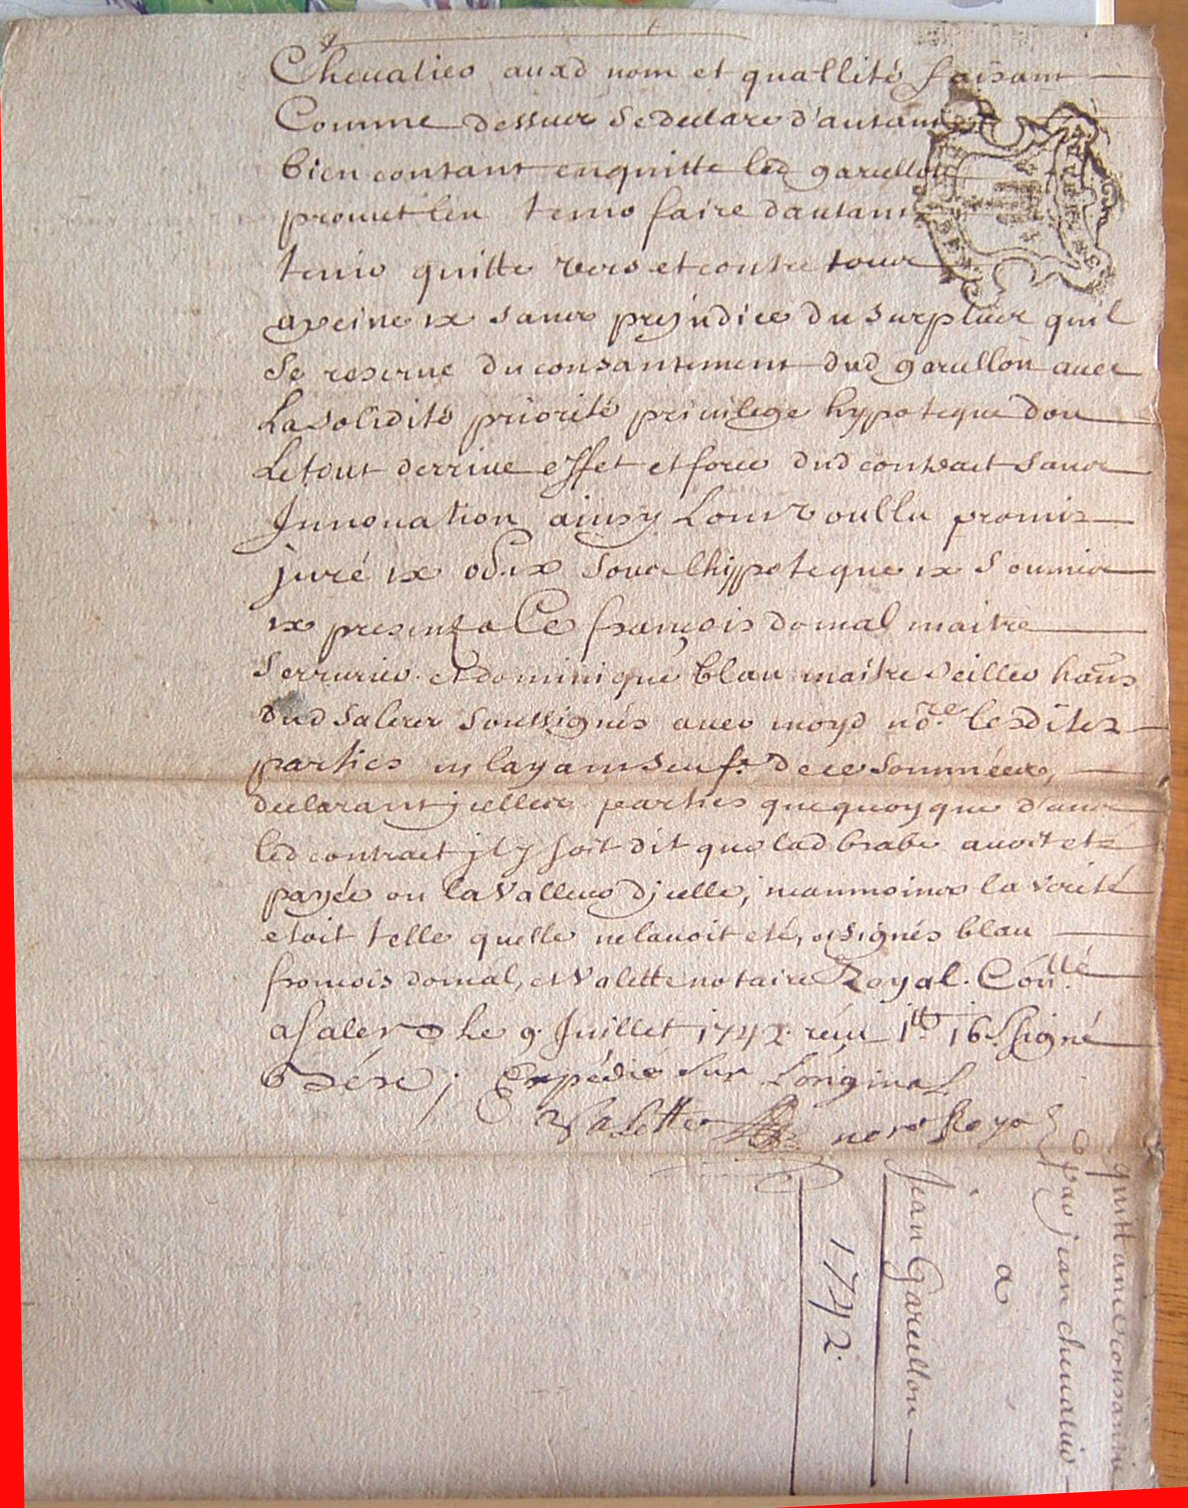 Chevalier auxd nom et quallité faisant
Comme dessus se declare d'autant
bien contant en quitte led garcellon
promet l'en tenir faire d'autant
tenir quitte vers et contre tous
a peine &c sans prejudice du surplus quil
se reserve du consantement dud garcellon avec
La solidité priorité privilege hypoteque dou
Le tout derrive effet et force dud contract sans
Innovation ainsy Lont voullu promis
juré &c obx &c sous lhippoteque &c soumis
&c presents a Ce françois domal maitre
serrurier et dominique blau maitre hans
dud Salers soussignés avec moyd nore lesdites
parties ny layant seu fe de ce sommées,
declarant jcelles parties que quoyque dans
led contract jl y soit dit que lad avoit eté
payée ou la valleur djcelle, neanmoins la verité
etoit telle quelle ne lavoit eté, et signés blau
françois domal, et Valette notaire Royal. Conllé
a Salers Le 9 Juillet 1742. réçu 1tt 16s signé
; Expédié sur Loriginal
Valette nore Royal
quittance consantie
par jean chevalier
a
Jean Garcellon
1742.